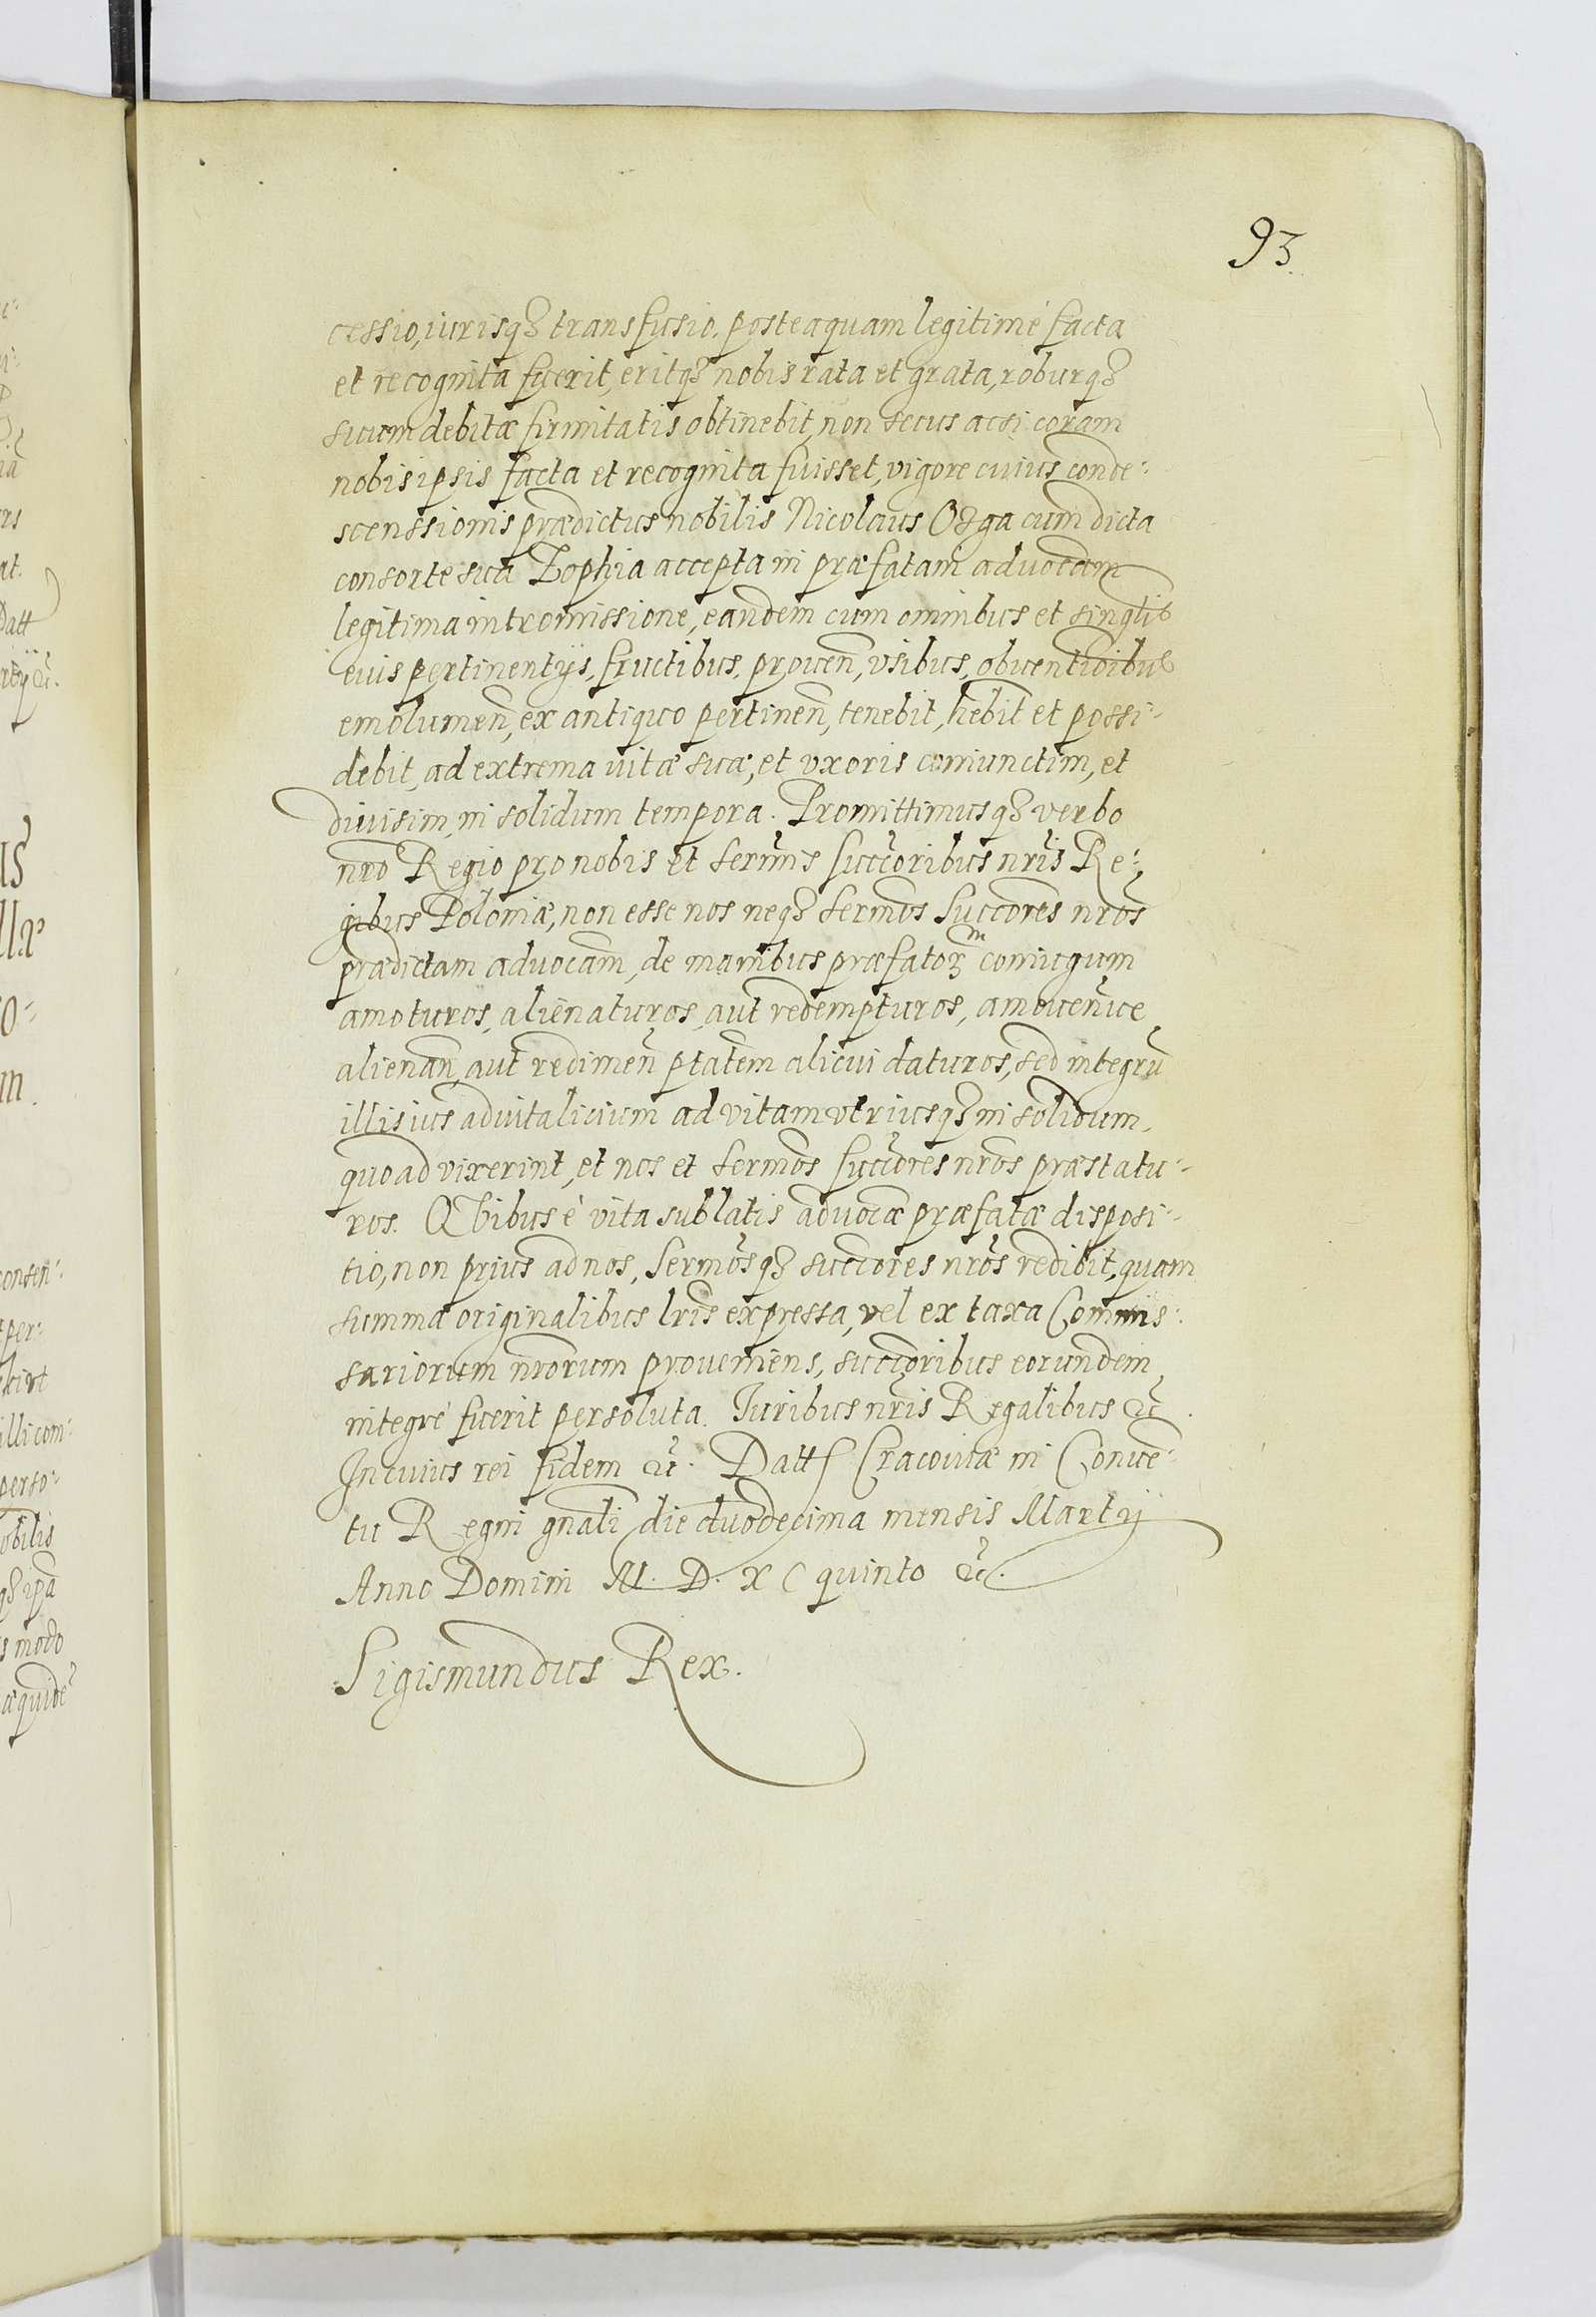 93.
cessio, iurisq3 transfusio. posteaquam legitimé facta
et recognita fuerit, eritq3 nobis rata et grata, roburq3
suum debitæ firmitatis obtinebit, non secus acsi coram
nobis ipsis facta et recognita fuisset, vigore cuius conde-
scenssionis prædictus nobilis Nicolaus Ozga cum dicta
consorte sua Zophia accepta in præfatam advocam̃
legitima intromissione, eandem cum omnibus et singlis
euis pertinentijs, fructibus, prouen̄, vsibus, obuentiõibus
emolumen̄, ex antiquo pertinen̄, tenebit, hēbit et possi-
debit, ad extrema vitæ suæ, et vxoris coniunctim, et
diuisim, in solidum tempora. Promittimusq3 verbo
nr̃o Regio pro nobis et serm̃is succ̃oribus nr̃is Re-
gibus Poloniæ, non esse nos neq3 serm̃os succ̃ores nr̃os
prædictam advocam̃, de manibus præfator3 coniugum
amoturos, alienaturos, aut redempturos, amouen̄ve
alienan̄, aut redimen̄ ptatem̃ alicui daturos, sed integrū
illis ius advitalicium ad vitam vtriusq3 in solidum,
quoad vixerint, et nos et serm̃os succ̃ores nr̃os præstatu-
ros. QVibus è vita sublatis advocæ̃ præfatæ disposi-
tio, non prius ad nos, serm̃osq3 succ̃ores nr̃os redibit, quam
summa originalibus lr̃is expressa, vel ex taxa Commis-
sariorum nr̃orum proueniens, succ̃oribus eorundem
integré fuerit persoluta. Iuribus nr̃is Regalibus &c̃.
In cuius rei fidem &c̃. Datt Cracouiæ in Conuē-
tu Regni gn̄ali die duodecima mensis Martij
Anno Domini M. D. X C quinto &c̃.
Sigismundus Rex.